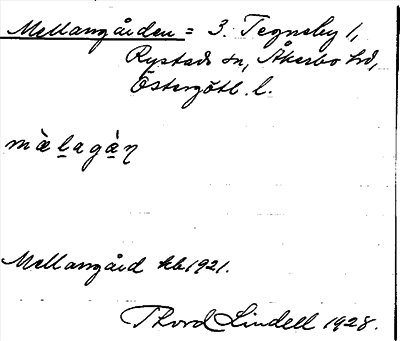 Mellangården = 3. Tegneby 1,
Rystads sn, Åkerbo hd,
Östergötl. l.
mæ̀lagàn
Mellangård kb 1921.
Thord Lindell 1928.